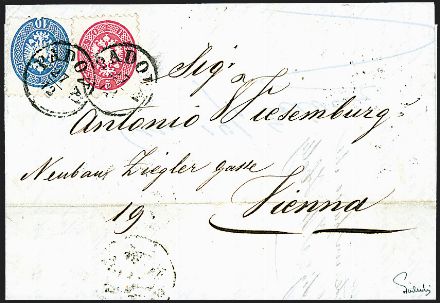 10
PADOVA
PADOVA
Sigr
Antonio Wiesemburg
Neubau Ziegler gasse
19 Vienna